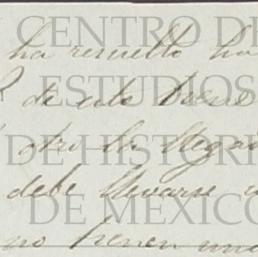 CENTRO DE
ha resuelto ha
ESTUDIOS
de este
DE HISTORI
otro la llega
debe llevarse
DE MÉXICO
no tienen una